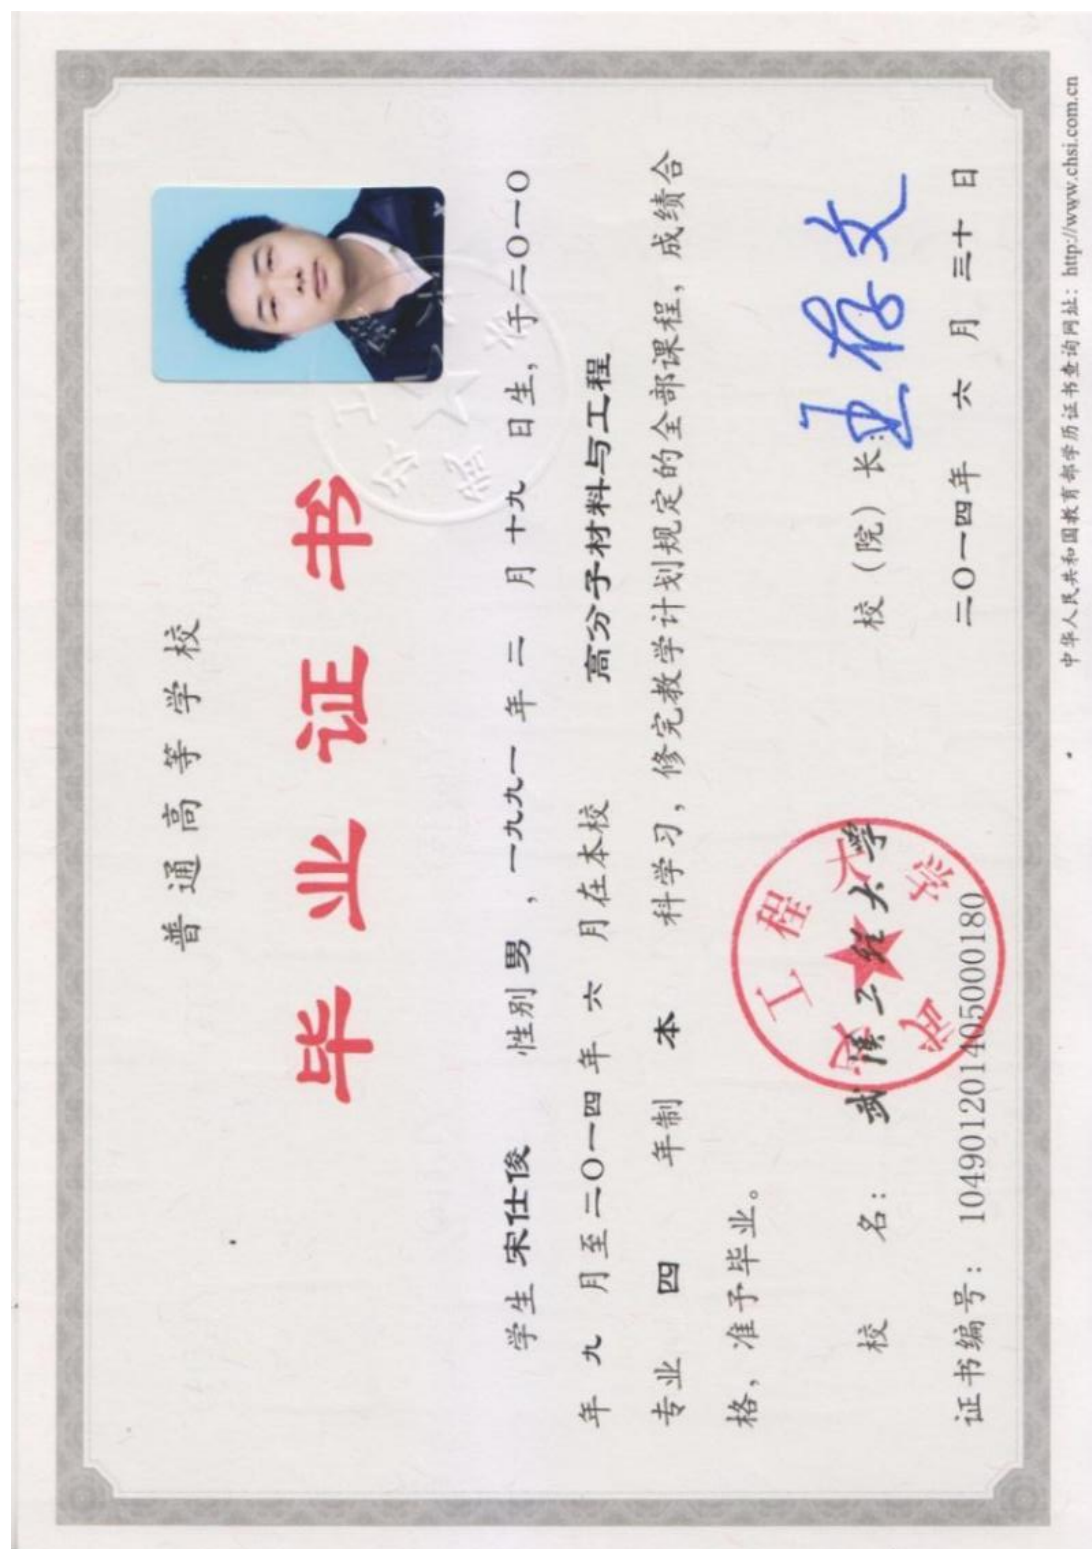 普通高等学校
毕业证书
学生 宋仕俊 性别 男 ，一九九一 年 二 月 十九 日生，于二〇一〇
年 九 月至二〇一四年 六 月在本校 高分子材料与工程
专业 四 年制 本 科学习，修完教学计划规定的全部课程，成绩合
格，准予毕业。
校 名： 武汉工程大学
武汉工程大学
校（院）长：
证书编号：104901201405000180
二〇一四年 六 月 三十 日
中华人民共和国教育部学历证书查询网址：http://www.chsi.com.cn